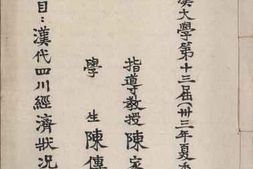 漢大學第十三屆(卅三年夏季
指導教授陳家
學生陳傳
目:漢代四川經濟狀況